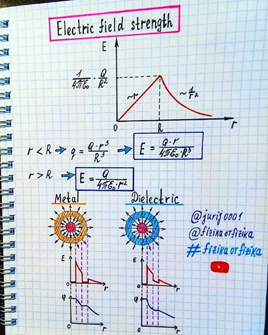 Electric field strength
E
1/4πε₀ · Q/R²
~r
~1/r²
0
R
r
r < R → q = Q·r³/R³ → E = Q·r/4πε₀·R³
r > R → E = Q/4πε₀·r²
Metal
Dielectric
@jurij0001
@fizikaorfizika
#fizikaorfizika
E
r
E
r
φ
r
φ
r